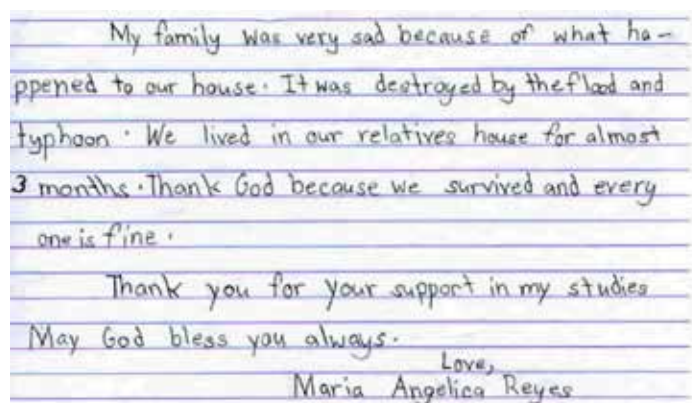 My family was very sad because of what ha-
ppened to our house. It was destroyed by the flood and
typhoon. We lived in our relatives house for almost
3 months. Thank God because we survived and every
one is fine.
Thank you for your support in my studies
May God bless you always.
Love,
Maria Angelica Reyes